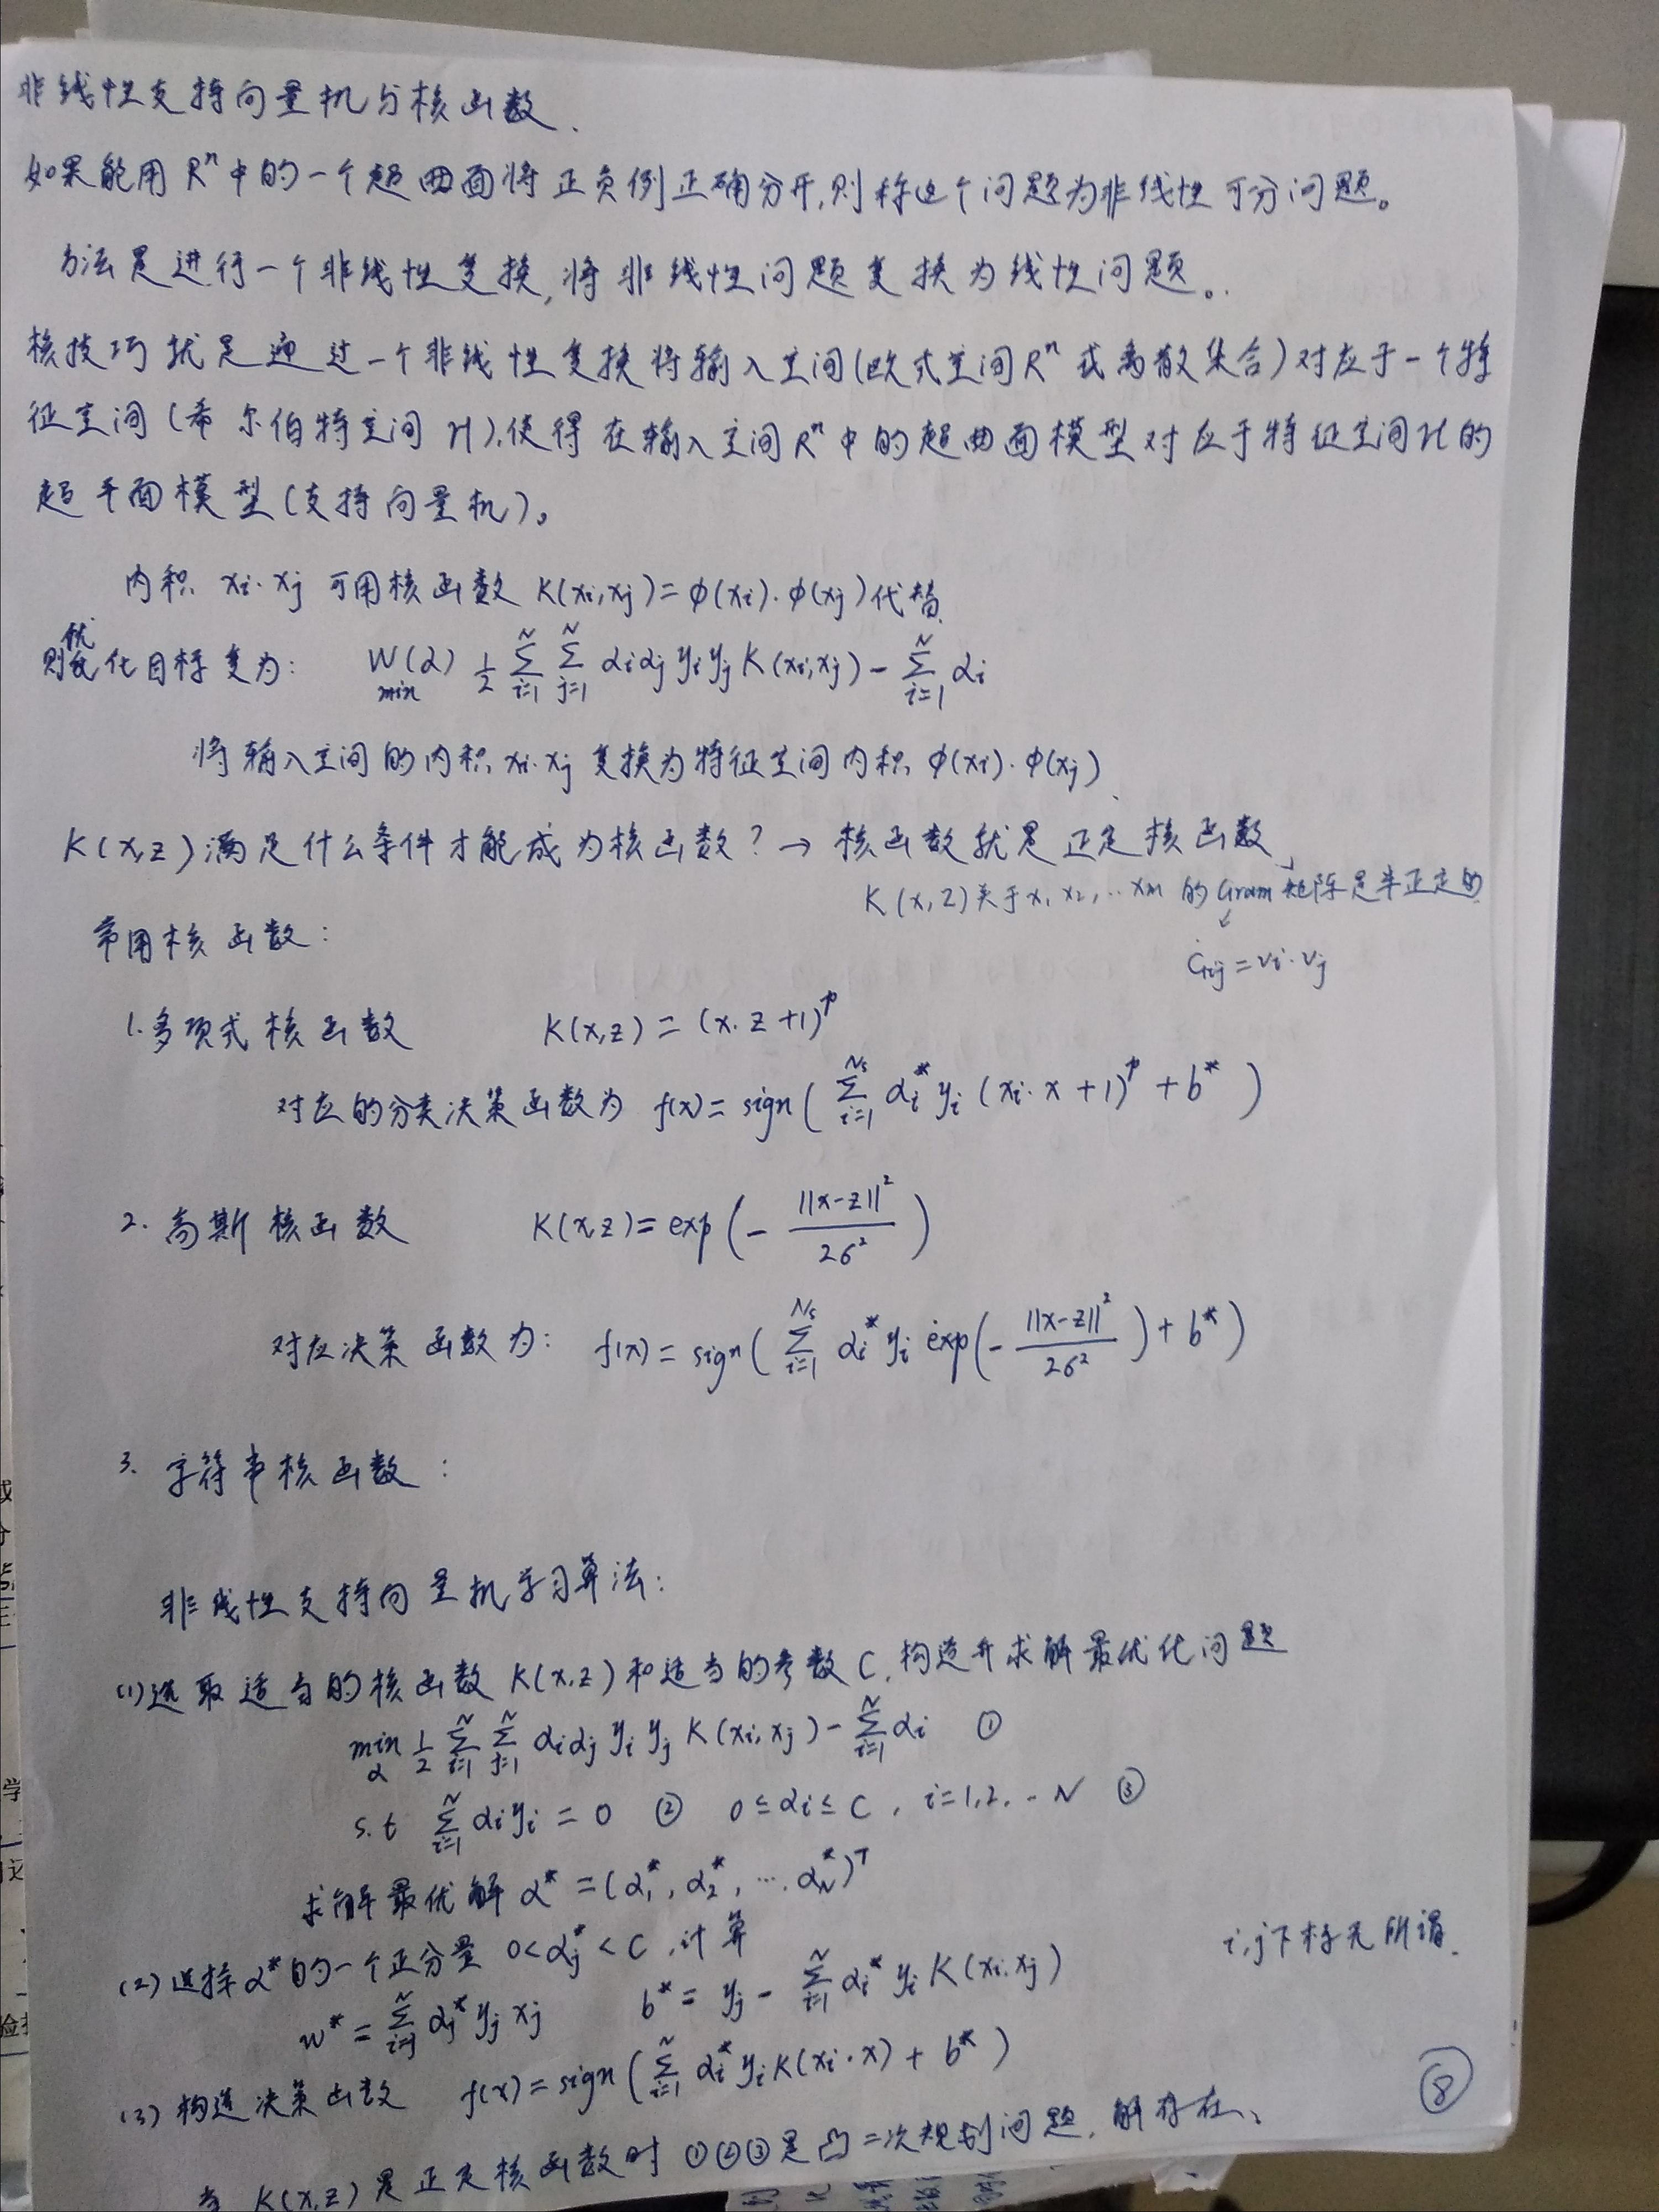 非线性支持向量机与核函数、
如果能用 Rⁿ 中的一个超曲面将正负例正确分开,则称这个问题为非线性可分问题。
方法是进行一个非线性变换,将非线性问题变换为线性问题。
核技巧就是通过一个非线性变换将输入空间(欧式空间Rⁿ或离散集合)对应于一个特
征空间(希尔伯特空间 H),使得在输入空间Rⁿ中的超曲面模型对应于特征空间H的
超平面模型(支持向量机)。
内积 xi·xj 可用核函数 K(xi,xj)=φ(xi)·φ(xj)代替
则优化目标变为: W(α) min 1/2 Σ_{i=1}^{N} Σ_{j=1}^{N} αiαj yiyj K(xi,xj) - Σ_{i=1}^{N} αi
将输入空间的内积 xi·xj 变换为特征空间内积 φ(xi)·φ(xj)
K(x,z)满足什么条件才能成为核函数? → 核函数就是正定核函数
K(x,z)关于x₁ x₂,…xm 的Gram矩阵是半正定的
常用核函数:
Gij = vi·vj
1.多项式核函数 K(x,z) = (x·z+1)^p
对应的分类决策函数为 f(x) = sign( Σ_{i=1}^{Ns} αi* yi (xi·x+1)^p + b* )
2. 高斯核函数 K(x,z) = exp(- ||x-z||²/2σ²)
对应决策函数为: f(x) = sign( Σ_{i=1}^{Ns} αi* yi exp(- ||x-z||²/2σ²) + b* )
3. 字符串核函数:
非线性支持向量机学习算法:
(1)选取适当的核函数 K(x,z)和适当的参数 C,构造并求解最优化问题
min_α 1/2 Σ_{i=1}^{N} Σ_{j=1}^{N} αiαj yi yj K(xi,xj) - Σ_{i=1}^{N} αi ①
s.t Σ_{i=1}^{N} αiyi = 0 ② 0≤αi≤C, i=1,2,..N ③
求解最优解 α* = (α₁*, α₂*, …, αN*)ᵀ
(2)选择α*的一个正分量 0<αj*<C,计算
i,j下标无所谓.
w* = Σ αj* yj xj b* = yj - Σ_{i=1}^{N} αi* yi K(xi·xj)
(3)构造决策函数 f(x) = sign( Σ_{i=1}^{N} αi* yi K(xi·x) + b* )
⑧
当 K(x,z)是正定核函数时 ①②③是凸二次规划问题,解存在、